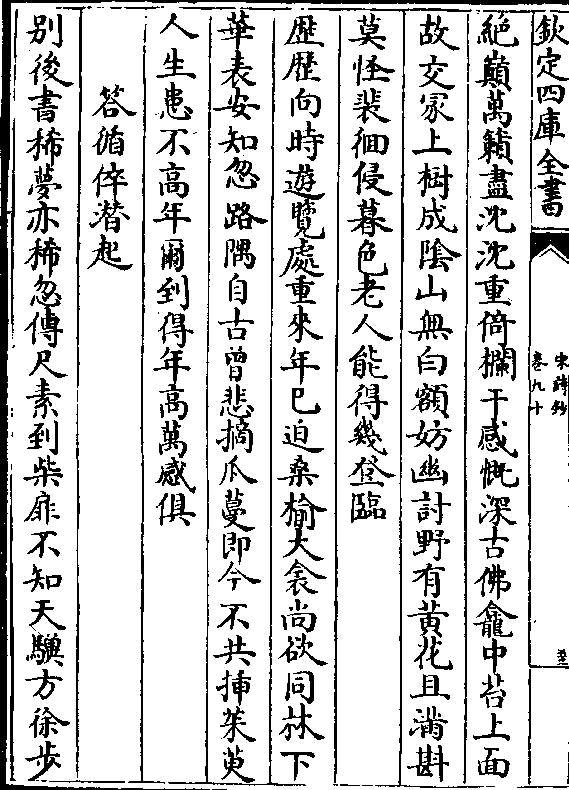 欽定四庫全書
宋詩鈔
卷九十
絶巔萬籟盡沈沈重倚欄干感慨深古佛龕中苔上面
故交冢上樹成隂山無白額妨幽討野有黄花且滿斟
莫怪裴徊侵暮色老人能得幾登臨
歴歴向時遊覽處重來年已迫桑榆大衾尚欲同林下
華表安知忽路隅自古曾悲摘瓜蔓即今不共揷茱萸
人生患不高年爾到得年高萬感俱
答循倅潜起
别後書稀夢亦稀忽傳尺素到柴扉不知天驥方徐步